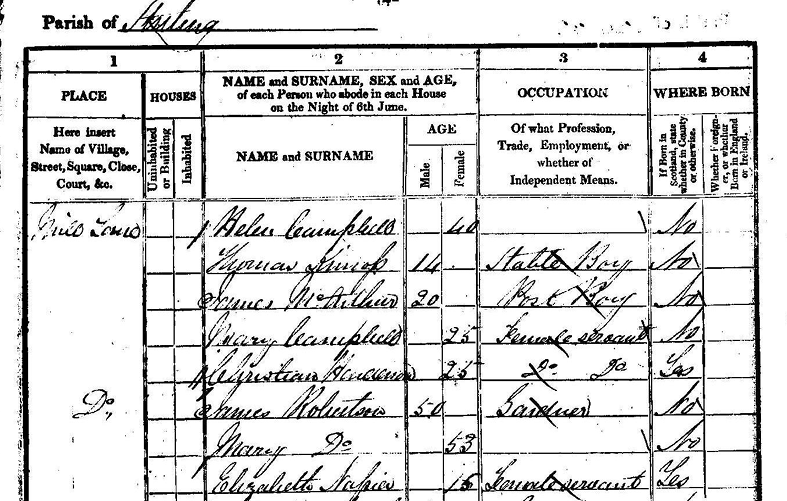 Parish of Stirling
1 2 3 4
PLACE HOUSES NAME and SURNAME, SEX and AGE, of each Person who abode in each House on the Night of 6th June. OCCUPATION WHERE BORN
Here insert Name of Village, Street, Square, Close, Court, &c. Uninhabited or Building Inhabited NAME and SURNAME AGE Male Female Of what Profession, Trade, Employment, or whether of Independent Means. If Born in Scotland, state whether in County or otherwise. Whether Foreigner, or whether Born in England or Ireland.
1 Helen Campbell 40 No
Thomas 14 Stable Boy No
James McArthur 20 Post Boy No
Mary Campbell 25 Female servant No
Christian Henderson 25 Do Do Yes
Do 1 James Robertson 50 Gardner No
Mary Do 53 No
Elizabeth Napier 15 Female servant Yes